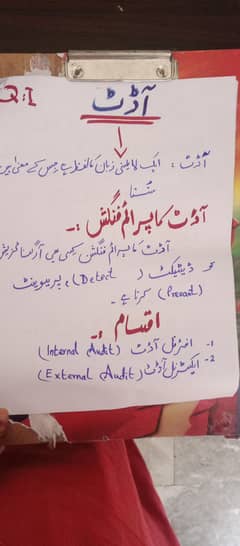 Q:1
آڈٹ
آڈٹ : ایک لاطینی زبان کا لفظ ہے جس کے معنی ہیں
سُننا
آڈٹ کا پرائم فنکش :-
آڈٹ کا پرائم فنکشن کسی بھی آرگنائزیش
ڈیٹیکٹ (Detect)، پریوینٹ
(Prevent) کرنا ہے۔
اقسام :-
1- انٹرنل آڈٹ (Internal Audit)
2- ایکسٹرنل آڈٹ (External Audit)